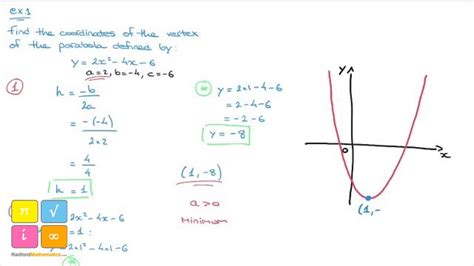 ex1
find the coordinates of the vertex
of the parabola defined by:
y = 2x² - 4x - 6
a=2, b=-4, c=-6
1
h = -b
2a
= -(-4)
2x2
= 4
4
h = 1
y = 2×1 - 4 - 6
= 2 - 4 - 6
= -2 - 6
y = -8
(1, -8)
a > 0
Minimum
2x² - 4x - 6
= 1 :
y = 2×1² - 4×1 - 6
π √
i ∞
RadfordMathematics.com
y
0
x
(1, -